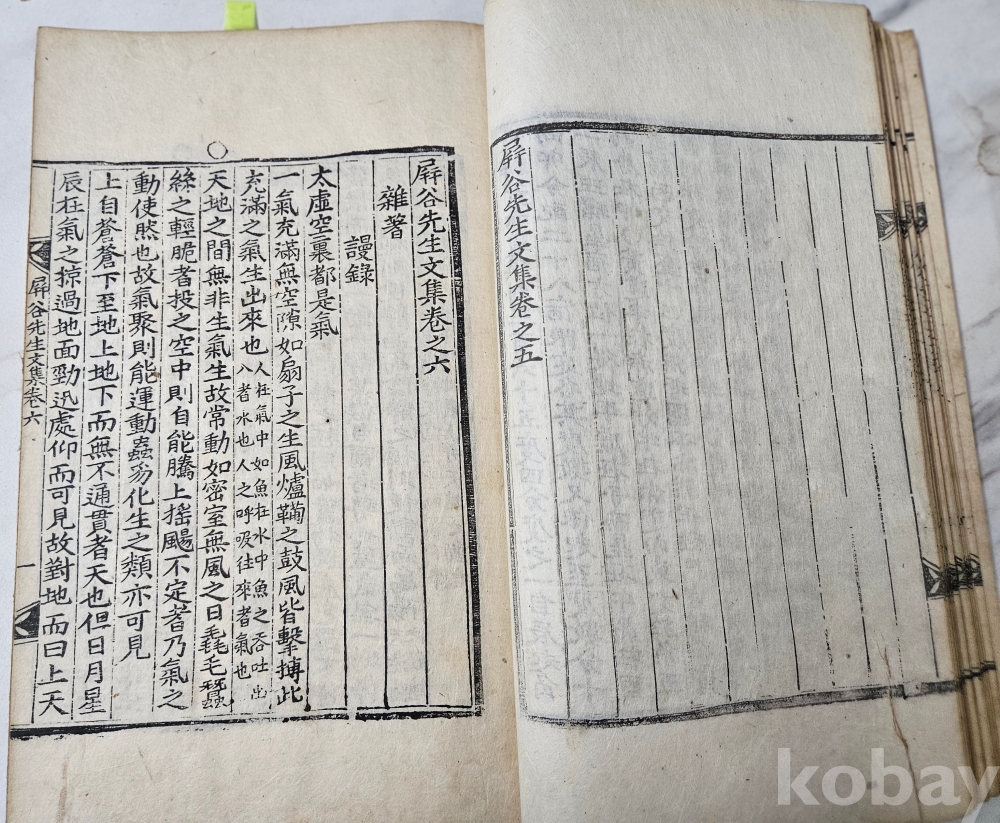 屛谷先生文集卷之五
屛谷先生文集卷之六
雜著
謾錄
太虛空裏都是氣
一氣充滿無空隙如扇子之生風爐鞴之鼓風皆擊搏此
充滿之氣生出來也人在氣中如魚在水中魚之吞吐出
入者水也人之呼吸往來者氣也
天地之間無非生氣生故常動如密室無風之日毳毛蠶
絲之輕脆者投之空中則自能騰上搖颺不定者乃氣之
動使然也故氣聚則能運動蟲豸化生之類亦可見
上自蒼蒼下至地上地下而無不通貫者天也但日月星
辰在氣之掠過地面勁迅處仰而可見故對地而曰上天
屛谷先生文集卷六
一
kobay